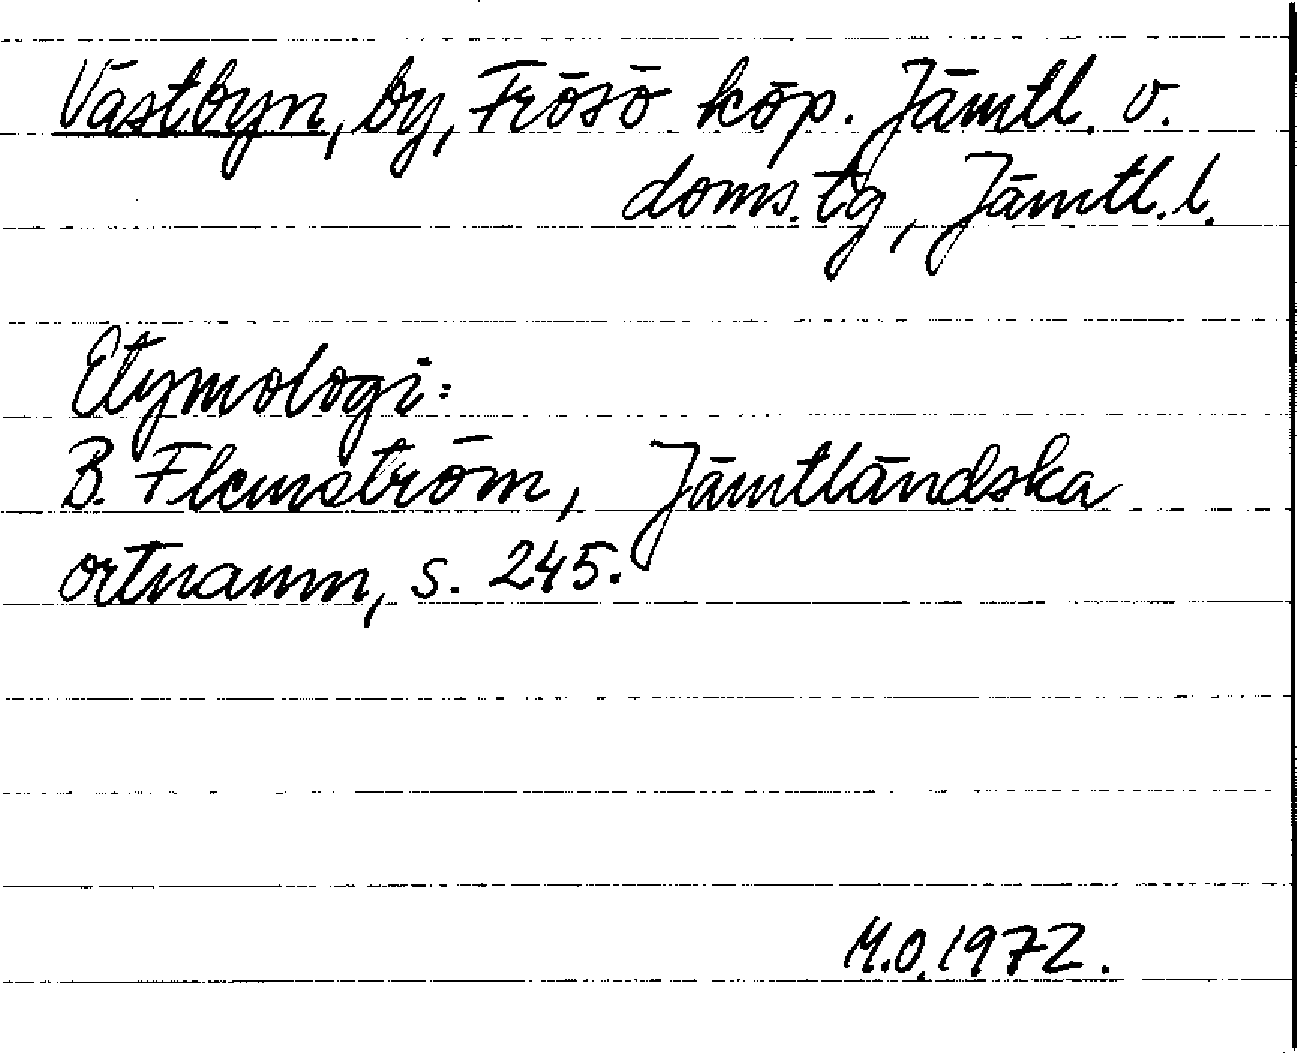 Västbyn, by, Frösö köp. Jämtl. v.
doms.tg, Jämtl.l.
Etymologi:
B. Flemström, Jämtländska
ortnamn, s. 245.
M.O.1972.